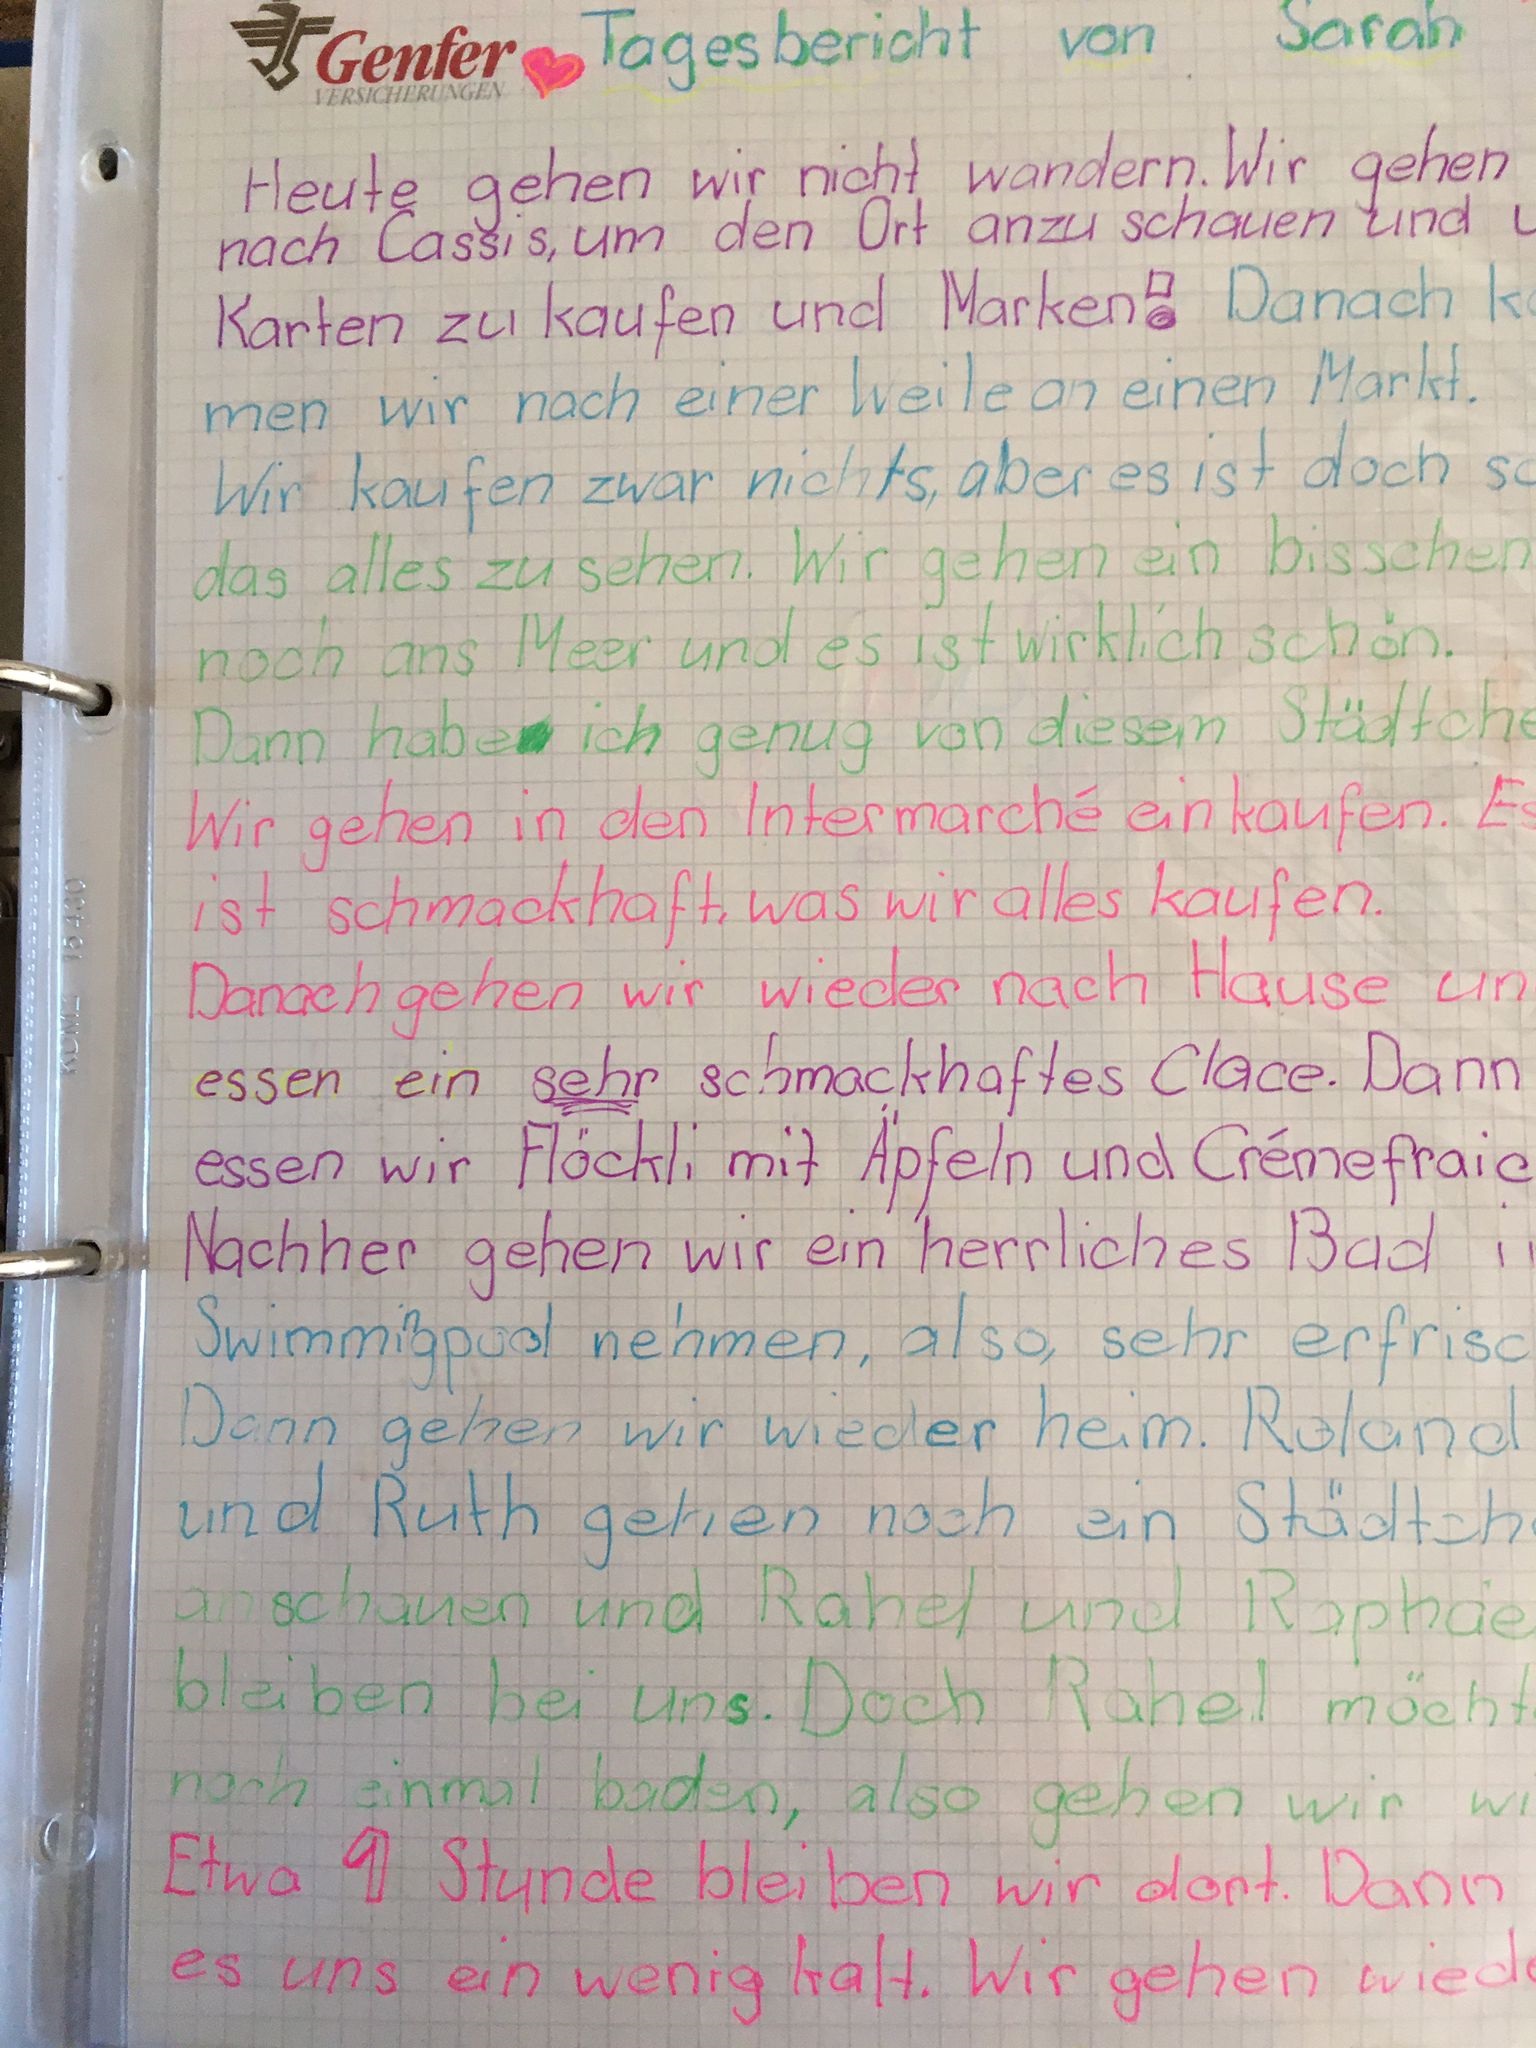 Genfer
VERSICHERUNGEN
Tagesbericht von Sarah
Heute gehen wir nicht wandern. Wir gehen
nach Cassis, um den Ort anzuschauen und u
Karten zu kaufen und Marken!
Danach ko
men wir nach einer Weile an einen Markt.
Wir kaufen zwar nichts, aber es ist doch sc
das alles zu sehen. Wir gehen ein bisschen
noch ans Meer und es ist wirklich schön.
Dann habe ich genug von diesem Städtche
Wir gehen in den Intermarché einkaufen. Es
ist schmackhaft, was wir alles kaufen.
Danach gehen wir wieder nach Hause un
essen ein sehr schmackhaftes Glace. Dann
essen wir Flöckli mit Äpfeln und Crémefraic
Nachher gehen wir ein herrliches Bad i
Swimmingpool nehmen, also, sehr erfrisc
Dann gehen wir wieder heim. Roland
und Ruth gehen noch ein Städtche
anschauen und Rahel und Raphae
bleiben bei uns. Doch Rahel möcht
noch einmal baden, also gehen wir wi
Etwa 1 Stunde bleiben wir dort. Dann
es uns ein wenig kalt. Wir gehen wiede
KOLMA 15 430